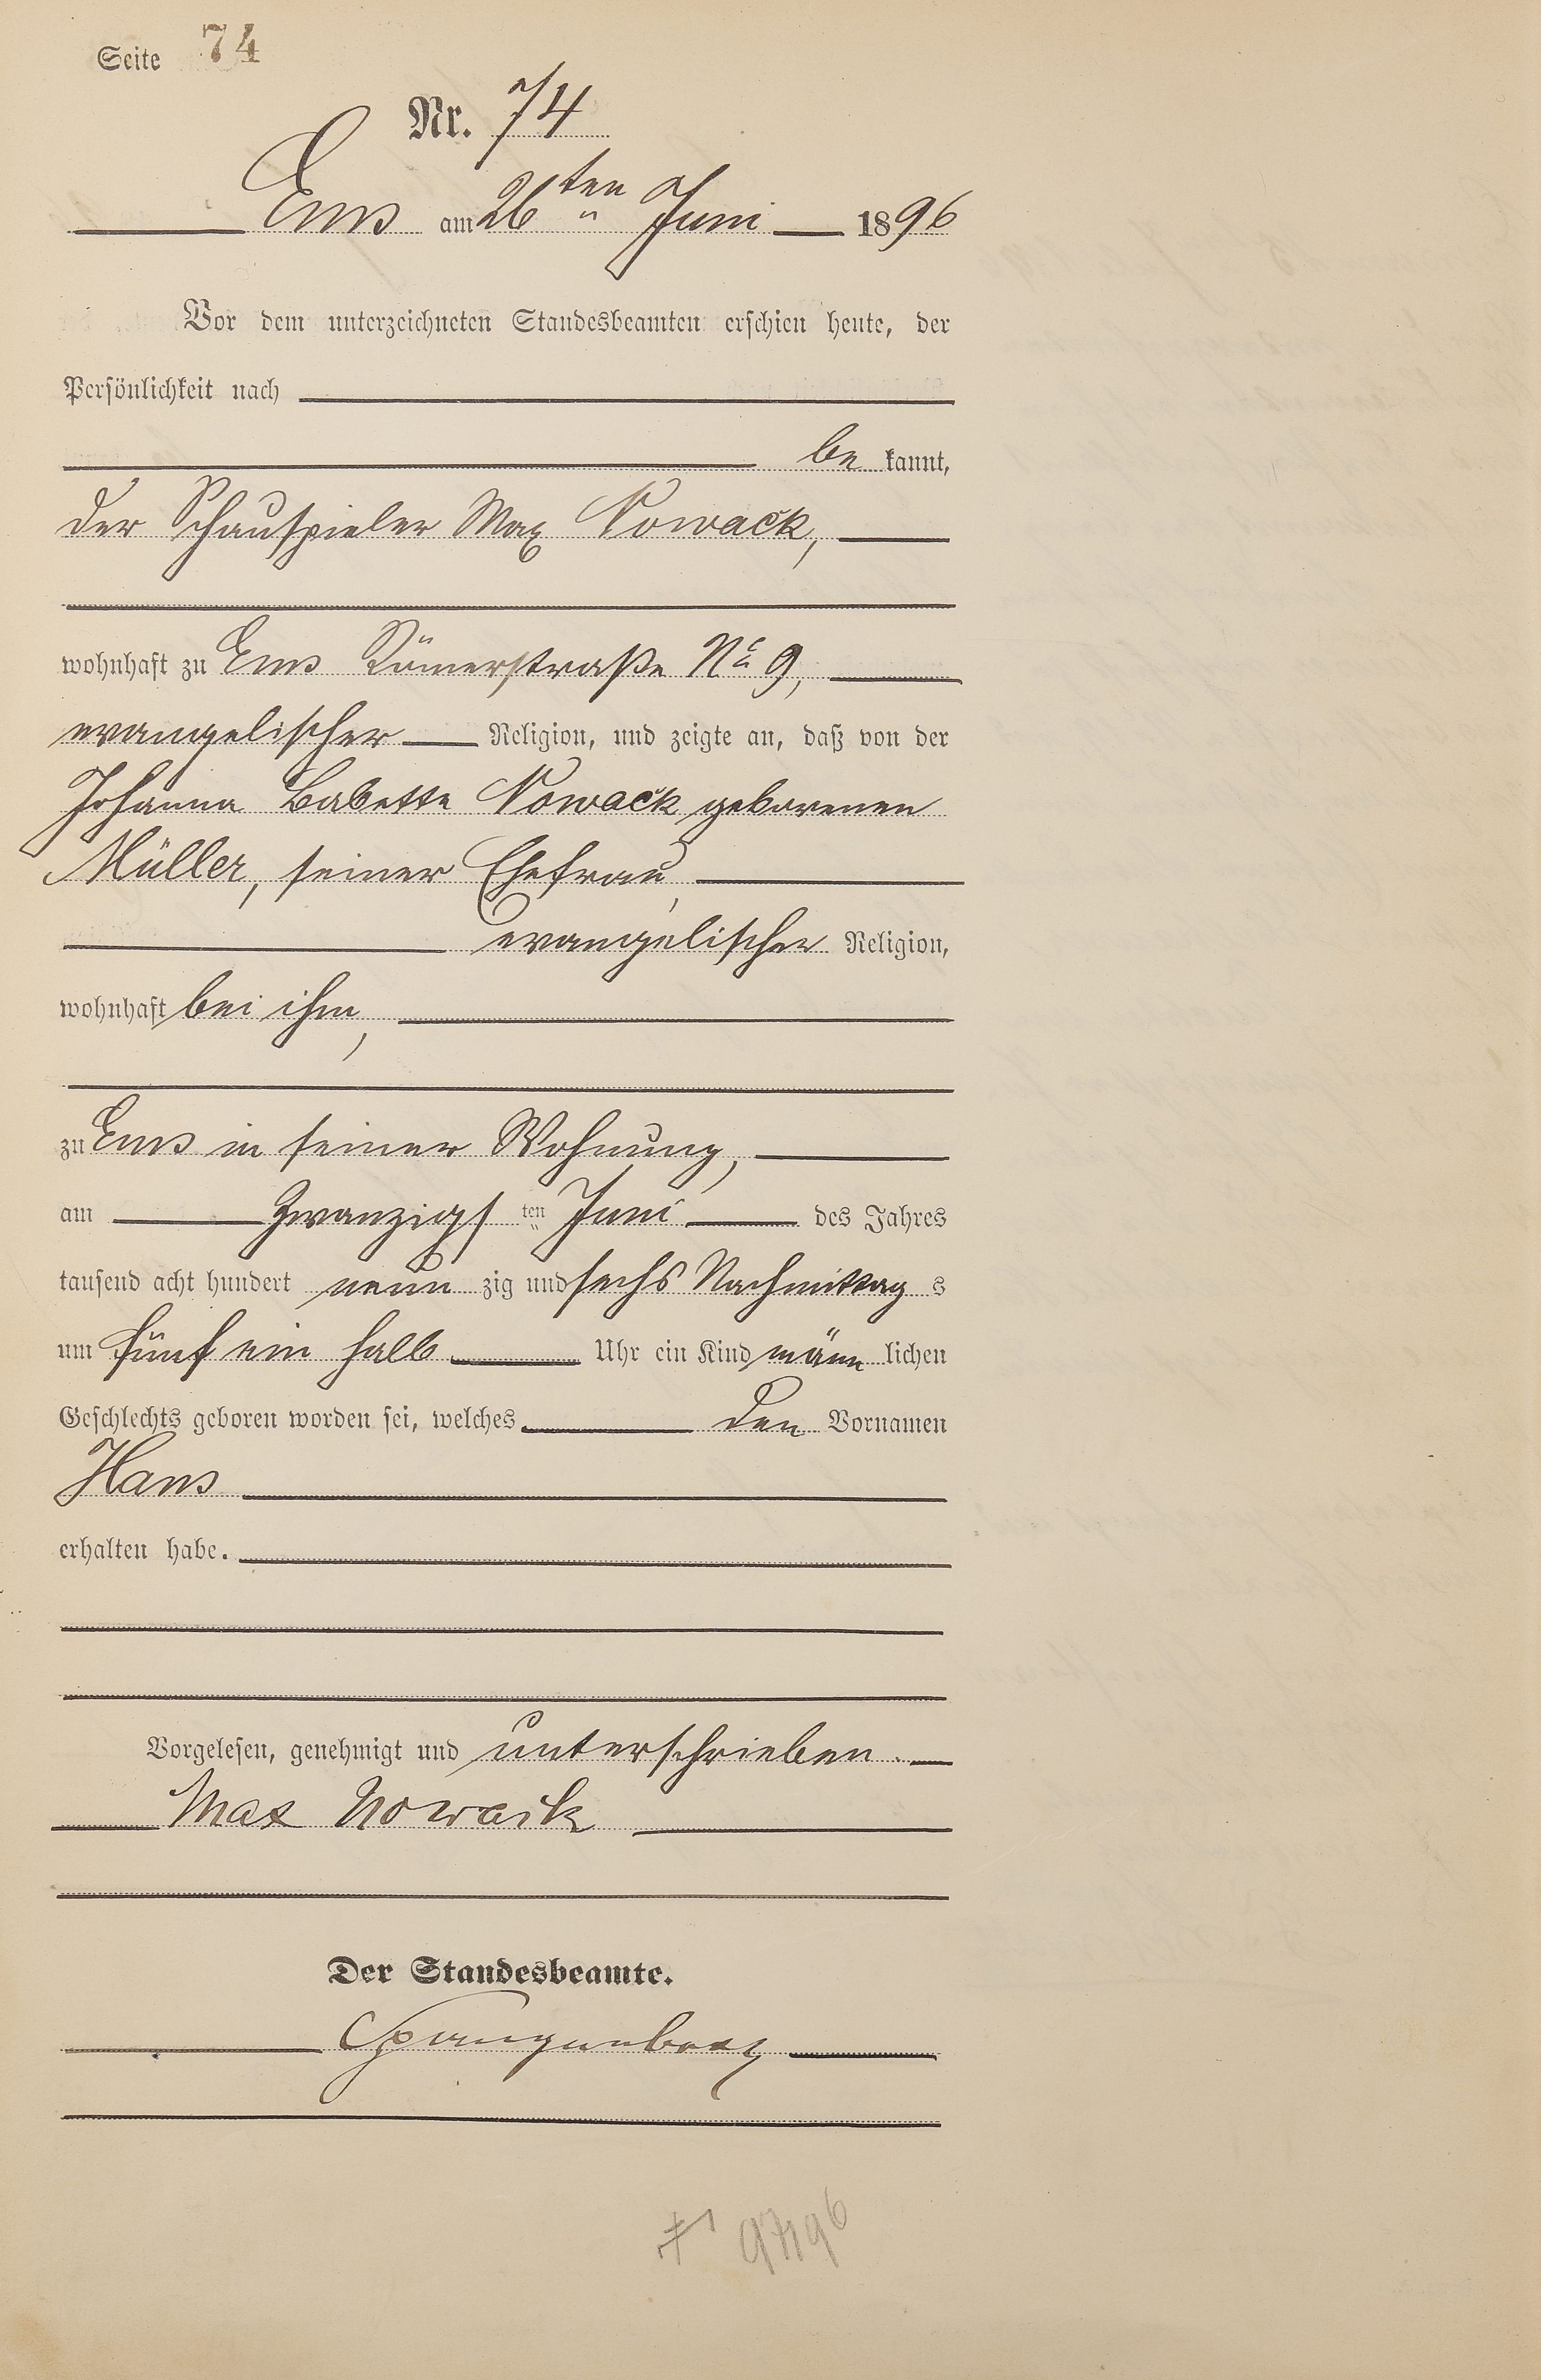 Seite 74
Nr. 74
Ems am 26ten Juni 1896
Vor dem unterzeichneten Standesbeamten erschien heute, der
Persönlichkeit nach
be kannt,
der Schauspieler Max Nowack,
wohnhaft zu Ems Römerstraße No 9,
evangelischer Religion, und zeigte an, daß von der
Johanna Babette Nowack geborenen
Müller, seiner Ehefrau,
evangelischer Religion,
wohnhaft bei ihm,
zu Ems in seiner Wohnung,
am Zwanzigs ten Juni des Jahres
tausend acht hundert neun zig und sechs Nachmittag s
um fünf ein halb Uhr ein Kind männ lichen
Geschlechts geboren worden sei, welches den Vornamen
Hans
erhalten habe.
Vorgelesen, genehmigt und unterschrieben.
Max Nowack
Der Standesbeamte.
Spangenberg